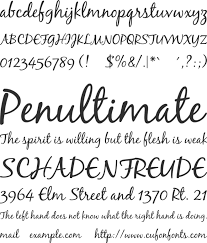 abcdefghijklmnopqrstuvwxyz
ABCDEFGHIJKLMNOPQRSTUVWXYZ
0123456789 (! %&/.|*` ?:;)
Penultimate
The spirit is willing but the flesh is weak
SCHADENFREUDE
3964 Elm Street and 1370 Rt. 21
The left hand does not know what the right hand is doing.
mail example.com http://www.cufonfonts.com